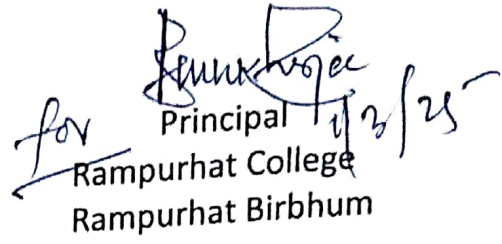 for Principal 1/3/25
Rampurhat College
Rampurhat Birbhum